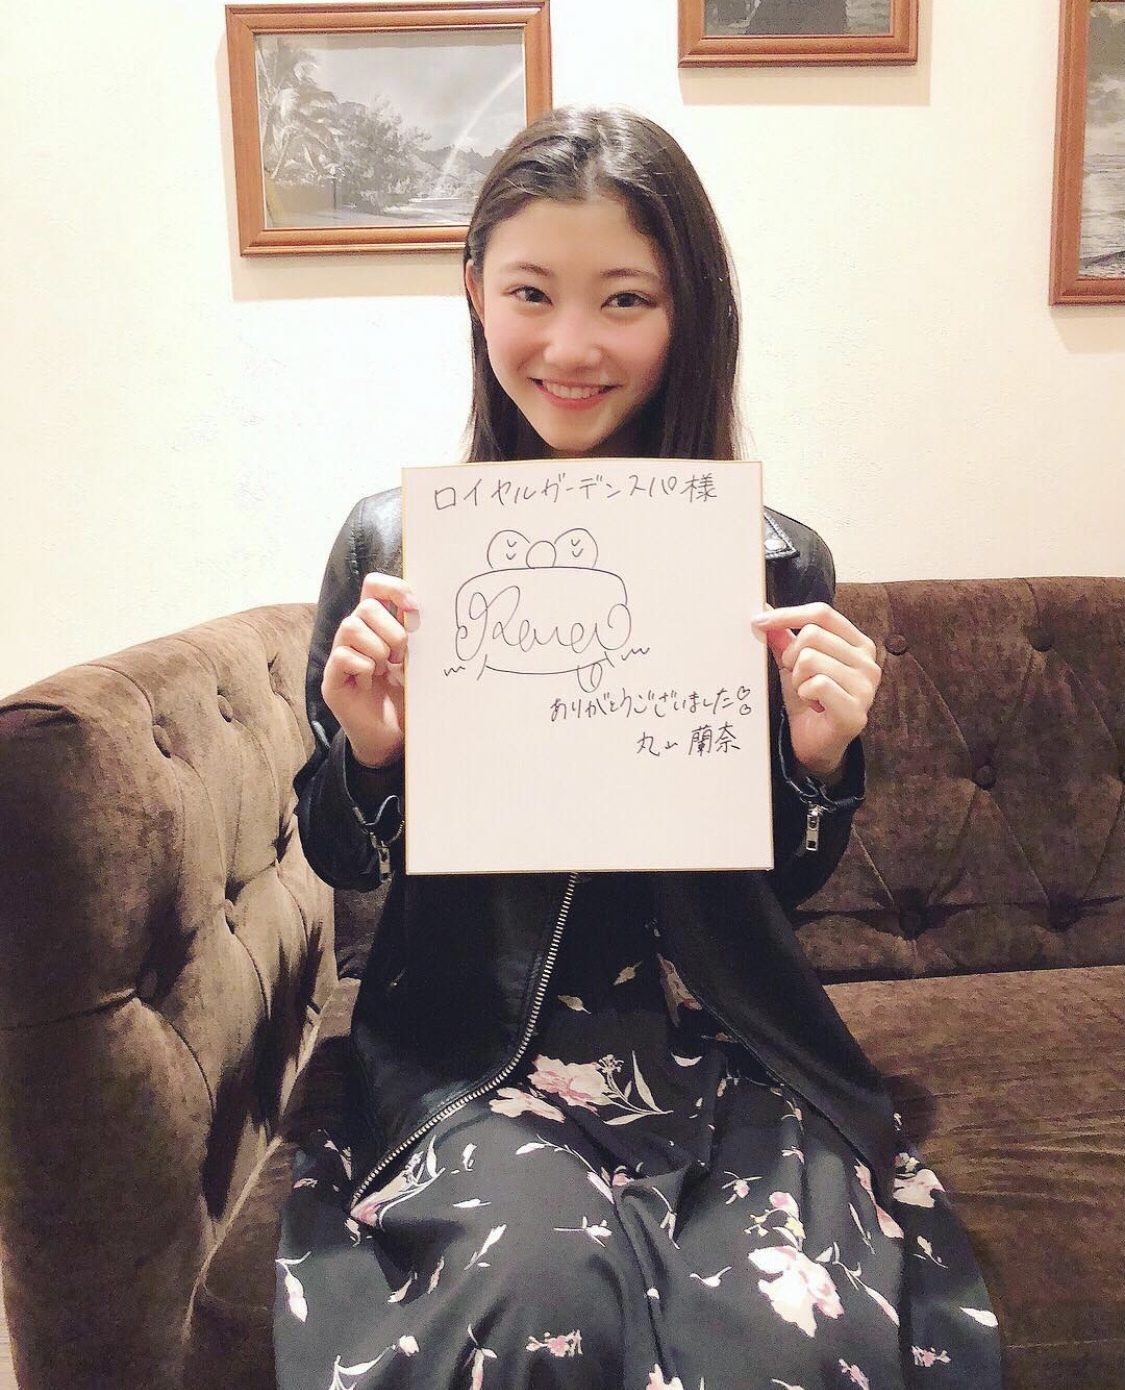 ロイヤルガーデンスパ様
ありがとうございました
丸山 蘭奈